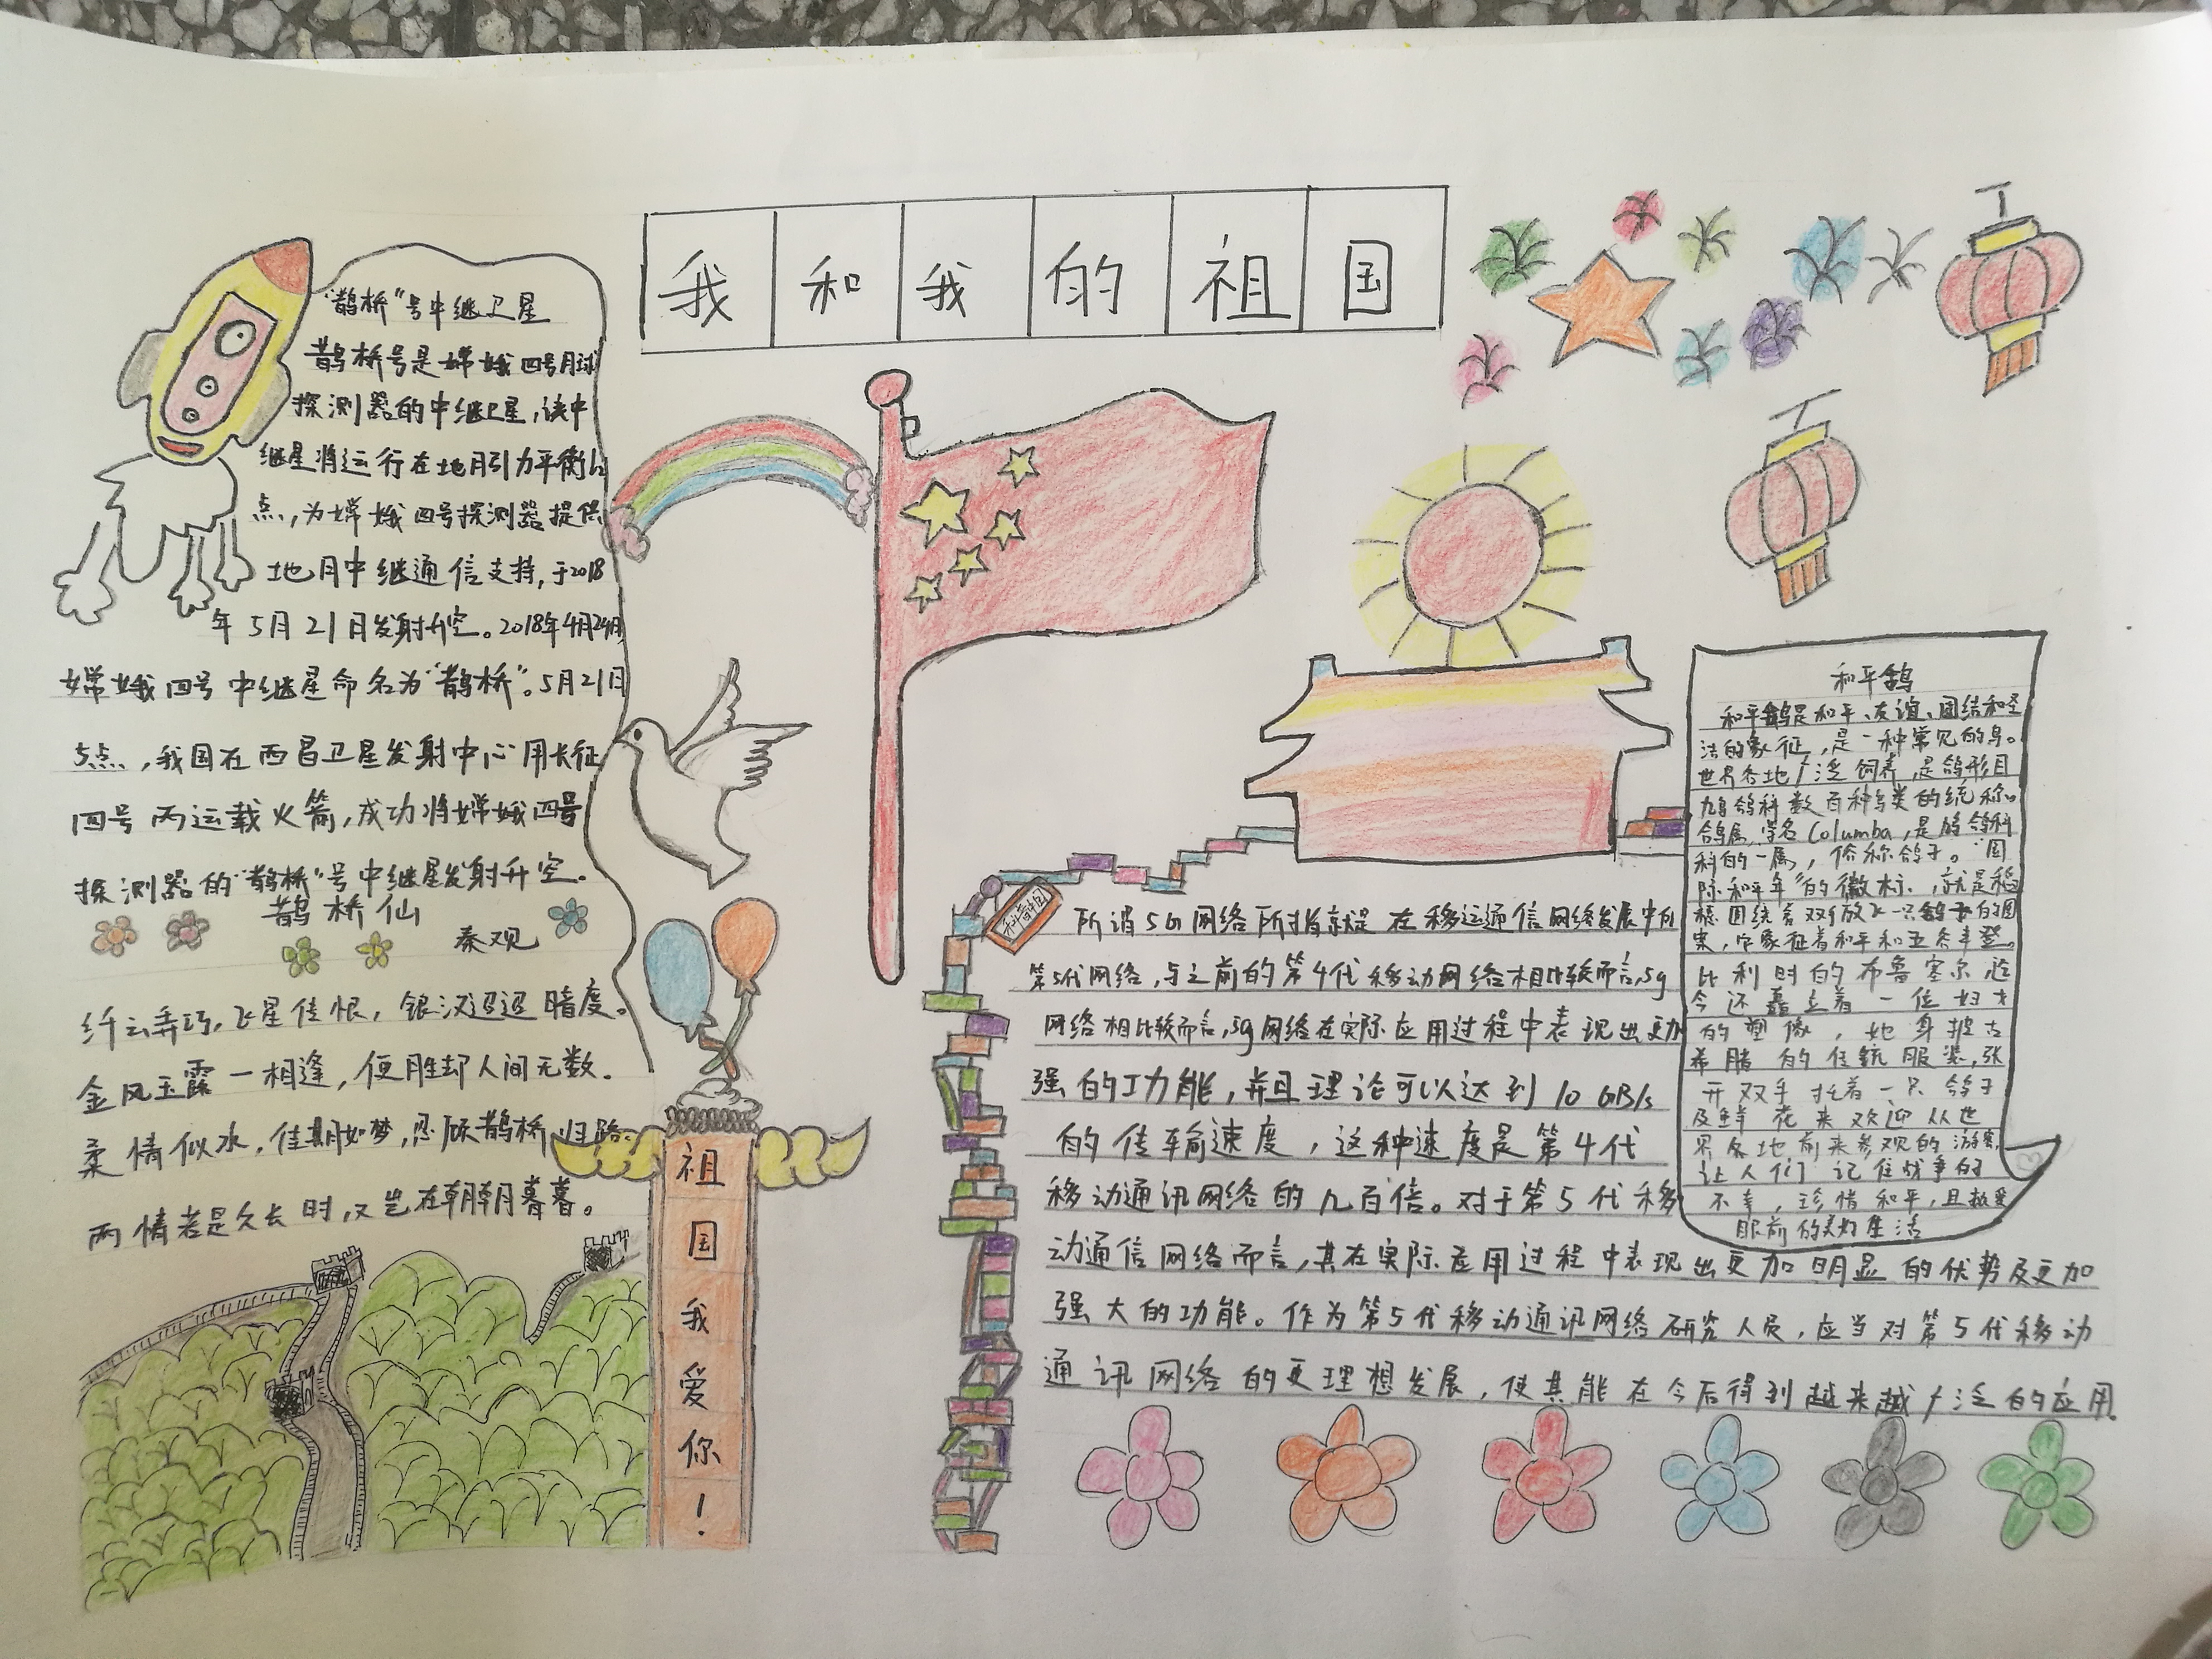 我和我的祖国
“鹊桥”号中继卫星
鹊桥号是嫦娥四号月球
探测器的中继卫星,该中
继星将运行在地月引力平衡L2
点,为嫦娥四号探测器提供
地月中继通信支持,于2018
年5月21日发射升空。2018年4月24日,
嫦娥四号中继星命名为“鹊桥”。5月21日
5点,我国在西昌卫星发射中心用长征
四号丙运载火箭,成功将嫦娥四号
探测器的“鹊桥”号中继星发射升空.
鹊桥仙
秦观
纤云弄巧,飞星传恨,银汉迢迢暗度。
金风玉露一相逢,便胜却人间无数.
柔情似水,佳期如梦,忍顾鹊桥归路.
两情若是久长时,又岂在朝朝暮暮。
祖国我爱你!
所谓5G网络所指就是在移运通信网络发展中的
第5代网络,与之前的第4代移动网络相比较而言,5g
网络相比较而言,5g网络在实际应用过程中表现出更加
强的功能,并且理论可以达到10GB/s
的传输速度,这种速度是第4代
移动通讯网络的几百倍。对于第5代移
动通信网络而言,其在实际应用过程中表现出更加明显的优势及更加
强大的功能。作为第5代移动通讯网络研究人员,应当对第5代移动
通讯网络的更理想发展,使其能在今后得到越来越广泛的应用.
和平鸽
和平鸽是和平、友谊、团结和圣
洁的象征,是一种常见的鸟。
世界各地广泛饲养,是鸽形目
鸠鸽科数百种鸟类的统称。
鸽属,学名Columba,是鸠鸽科
科的一属,俗称鸽子。“国
际和平年”的徽标,就是稻
穗围绕着双手放飞一只鸽子的图
案,它象征着和平和五谷丰登。
比利时的布鲁塞尔迄
今还矗立着一位妇女
的塑像,她身披古
希腊的传统服装,张
开双手托着一只鸽子
及鲜花来欢迎从世
界各地前来参观的游客,
让人们记住战争的
不幸,珍惜和平,且热爱
眼前的美好生活